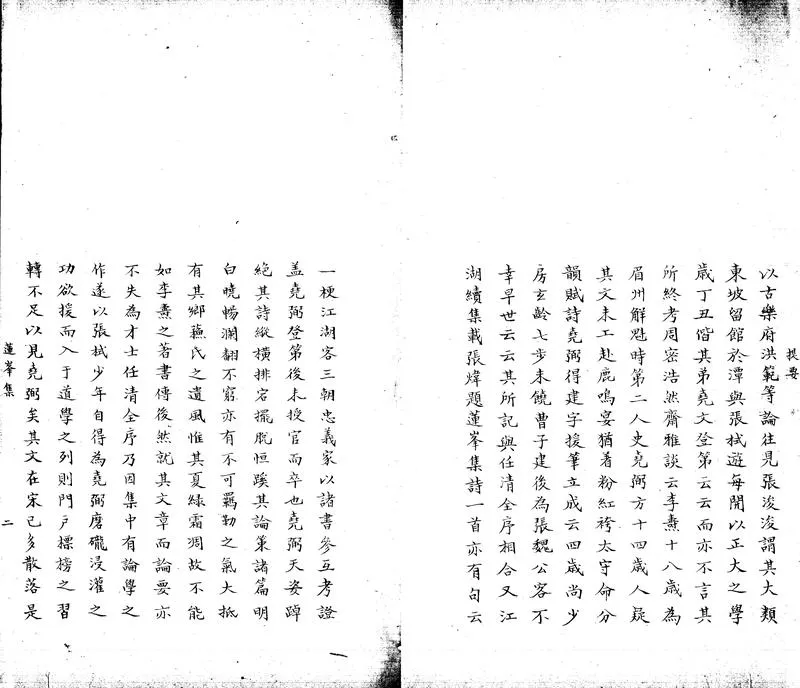 提要
以古樂府洪範等論往見張浚浚謂其大類
東坡留館於潭與張栻遊每開以正大之學
歳丁丑偕其弟堯文登第云云而亦不言其
所終考周密浩然齋雅談云李燾十八歳為
眉州解魁時第二人史堯弼方十四歳人疑
其文未工赴鹿鳴宴猶着粉紅袴太守命分
韻賦詩堯弼得建字援筆立成云四歳尚少
房玄齡七步未饒曹子建後為張魏公客不
幸早世云云其所記與任清全序相合又江
湖續集載張煒題蓮峯集詩一首亦有句云
一梗江湖客三朝忠義家以諸書參互考證
盖堯弼登第後未授官而卒也堯弼天姿踔
絶其詩縱横排宕擺脫恒蹊其論策諸篇明
白曉暢瀾翻不窮亦有不可羈勒之氣大抵
有其鄉蘇氏之遺風惟其夏緑霜凋故不能
如李燾之著書傳後然就其文章而論要亦
不失為才士任清全序乃因集中有論學之
作遂以張栻少年自得為堯弼磨礲浸灌之
功欲援而入于道學之列則門戸標榜之習
轉不足以見堯弼矣其文在宋已多散落是
蓮峯集
二